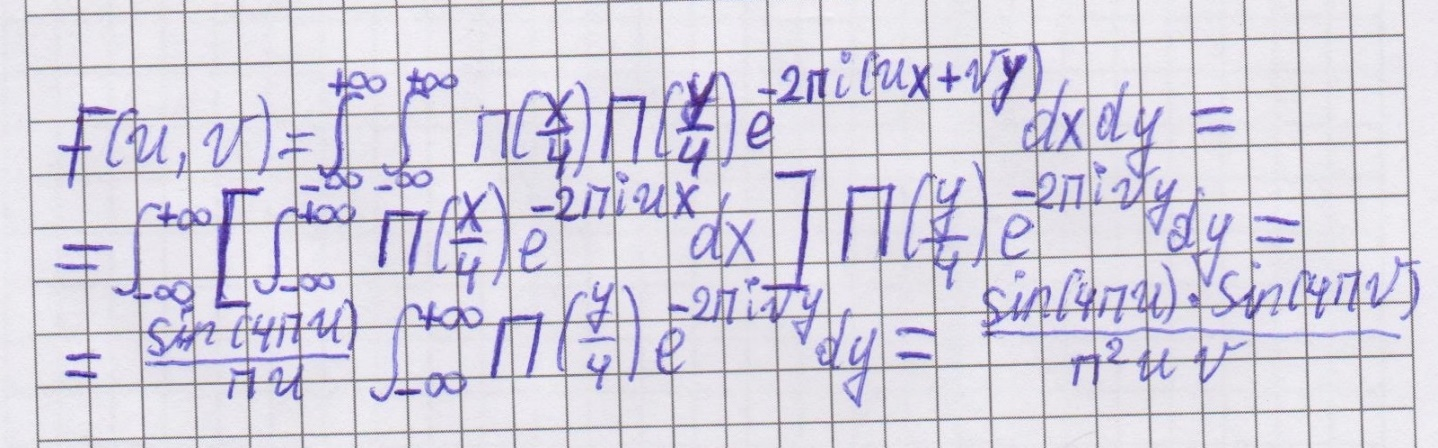 F(u, v) = ∫_{-∞}^{+∞} ∫_{-∞}^{+∞} П(x/4) П(y/4) e^{-2πi(ux+vy)} dx dy =
= ∫_{-∞}^{+∞} [ ∫_{-∞}^{+∞} П(x/4) e^{-2πiux} dx ] П(y/4) e^{-2πivy} dy =
= sin(4πu)/(πu) ∫_{-∞}^{+∞} П(y/4) e^{-2πivy} dy = (sin(4πu)·sin(4πv))/(π²uv)